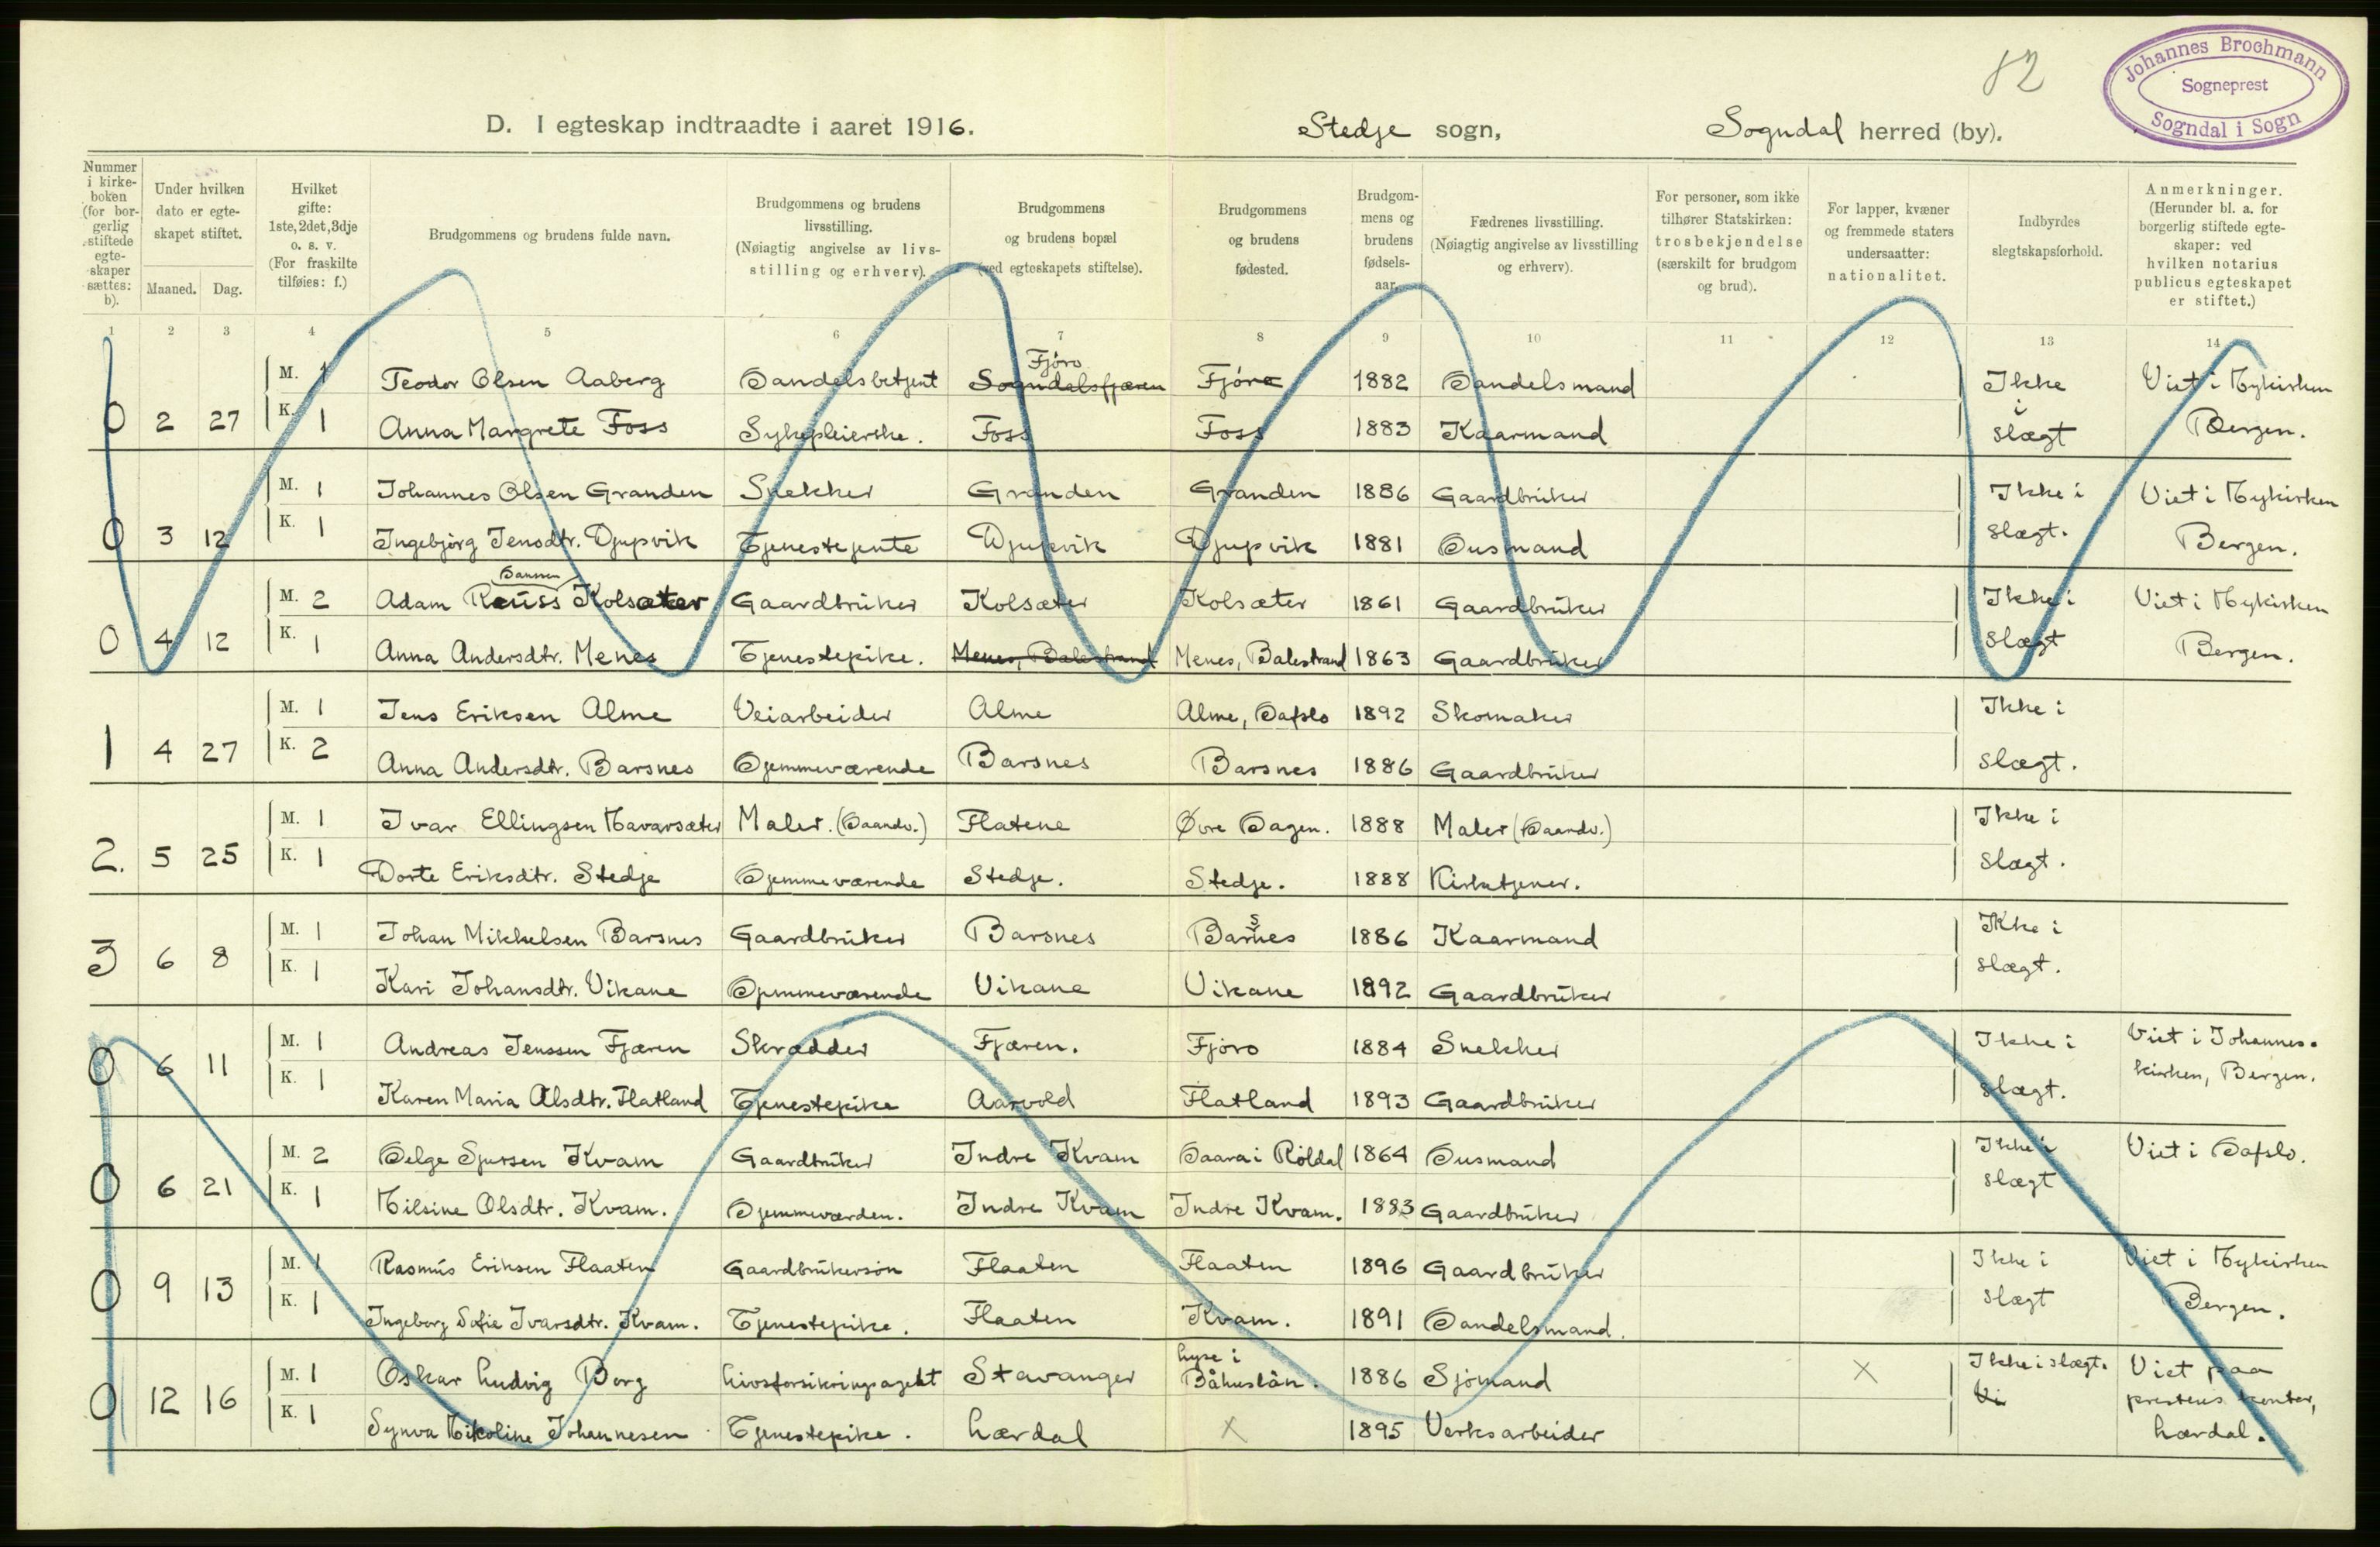 82
Johannes Brochmann
Sogneprest
Sogndal i Sogn
D. I egteskap indtraadte i aaret 1916. Stedje sogn, Sogndal herred (by).
Nummer i kirkeboken (for borgerlig stiftede egteskaper sættes: b).
Under hvilken dato er egteskapet stiftet.
Maaned. Dag.
Hvilket gifte: 1ste, 2det, 3dje o. s. v. (For fraskilte tilføies: f.)
Brudgommens og brudens fulde navn.
Brudgommens og brudens livsstilling. (Nøiagtig angivelse av livsstilling og erhverv).
Brudgommens og brudens bopæl (ved egteskapets stiftelse).
Brudgommens og brudens fødested.
Brudgommens og brudens fødselsaar.
Fædrenes livsstilling. (Nøiagtig angivelse av livsstilling og erhverv).
For personer, som ikke tilhører Statskirken: trosbekjendelse (særskilt for brudgom og brud).
For lapper, kvæner og fremmede staters undersaatter: nationalitet.
Indbyrdes slegtskapsforhold.
Anmerkninger. (Herunder bl. a. for borgerlig stiftede egteskaper: ved hvilken notarius publicus egteskapet er stiftet.)
1 2 3 4 5 6 7 8 9 10 11 12 13 14
Fjøro
M. 1 Teodor Olsen Aaberg Handelsbetjent Sogndalsfjæren Fjøro 1882 Handelsmand Ikke i Viet i Nykirken
0 2 27 K. 1 Anna Margrete Foss Sykepleierske. Foss Foss 1883 Kaarmand slægt Bergen.
M. 1 Johannes Olsen Granden Snekker Granden Granden 1886 Gaardbruker Ikke i Viet i Nykirken
0 3 12 K. 1 Ingebjørg Jensdtr. Djupvik Tjenestejente Djupvik Djupvik 1881 Husmand slægt. Bergen.
Hansen
M. 2 Adam Kolsæter Gaardbruker Kolsæter Kolsæter 1861 Gaardbruker Ikke i Viet i Nykirken
0 4 12 K. 1 Anna Andersdtr. Menes Tjenestepike. Menes, Balestrand Menes, Balestrand 1863 Gaardbruker slægt Bergen.
M. 1 Jens Eriksen Alme Veiarbeider Alme Alme, Hafslo 1892 Skomaker Ikke i
1 4 27 K. 2 Anna Andersdtr. Barsnes Hjemmeværende Barsnes Barsnes 1886 Gaardbruker slægt.
M. 1 Ivar Ellingsen Navarsæter Maler. (Haandv.) Flatene Øvre Hagen. 1888 Maler (Haandv.) Ikke i
2. 5 25 K. 1 Dorte Eriksdtr. Stedje Hjemmeværende Stedje. Stedje. 1888 Kirketjener. slægt.
M. 1 Johan Mikkelsen Barsnes Gaardbruker Barsnes Barsnes 1886 Kaarmand Ikke i
3 6 8 K. 1 Kari Johansdtr. Vikane Hjemmeværende Vikane Vikane 1892 Gaardbruker slægt.
M. 1 Andreas Jenssen Fjæren Skrædder Fjæren. Fjøro 1884 Snekker Ikke i Viet i Johannes-
0 6 11 K. 1 Karen Maria Olsdtr. Flatland Tjenestepike Aarvold Flatland 1893 Gaardbruker slægt. kirken, Bergen.
M. 2 Helge Sjursen Kvam Gaardbruker Indre Kvam Haara i Røldal 1864 Husmand Ikke i Viet i Hafslo.
0 6 21 K. 1 Nilsine Olsdtr. Kvam. Hjemmeværden. Indre Kvam Indre Kvam. 1883 Gaardbruker slægt
M. 1 Rasmus Eriksen Flaaten Gaardbrukersøn Flaaten Flaaten 1896 Gaardbruker Ikke i Viet i Nykirken
0 9 13 K. 1 Ingeborg Sofie Ivarsdtr. Kvam. Tjenestepike. Flaaten Kvam. 1891 Handelsmand. slægt Bergen.
Lyse i
M. 1 Oskar Ludvig Berg Livsforsikringsagent Stavanger Båhuslän. 1886 Sjømand X Ikke i slægt. Viet paa
Vi prestens kontor,
0 12 16 K. 1 Synva Nikoline Johannesen Tjenestepike. Lærdal X 1895 Verksarbeider Lærdal.